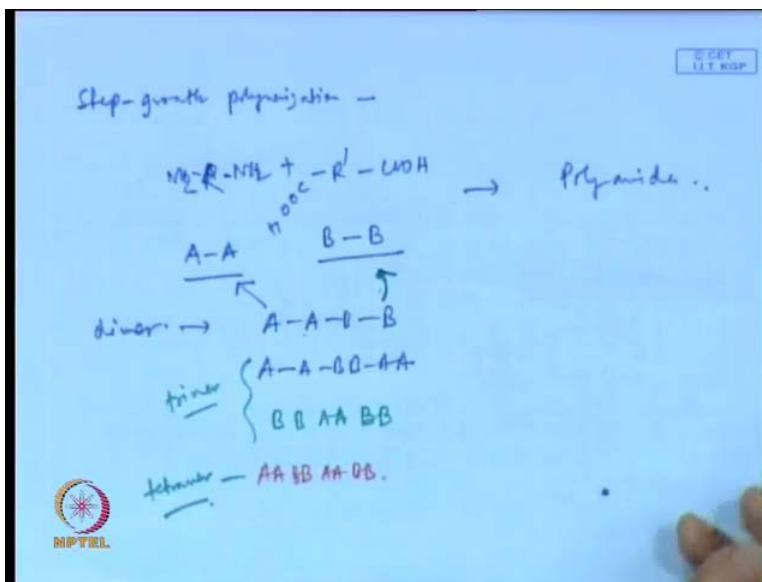 © CET
I.I.T. KGP
Step-growth polymerization —
NH2-R-NH2 + HOOC-R'-COOH → Polyamides..
A-A B-B
dimer. → A-A-B-B
trimer A-A-BB-AA
BB AA BB
tetramer — AA BB AA BB.
NPTEL